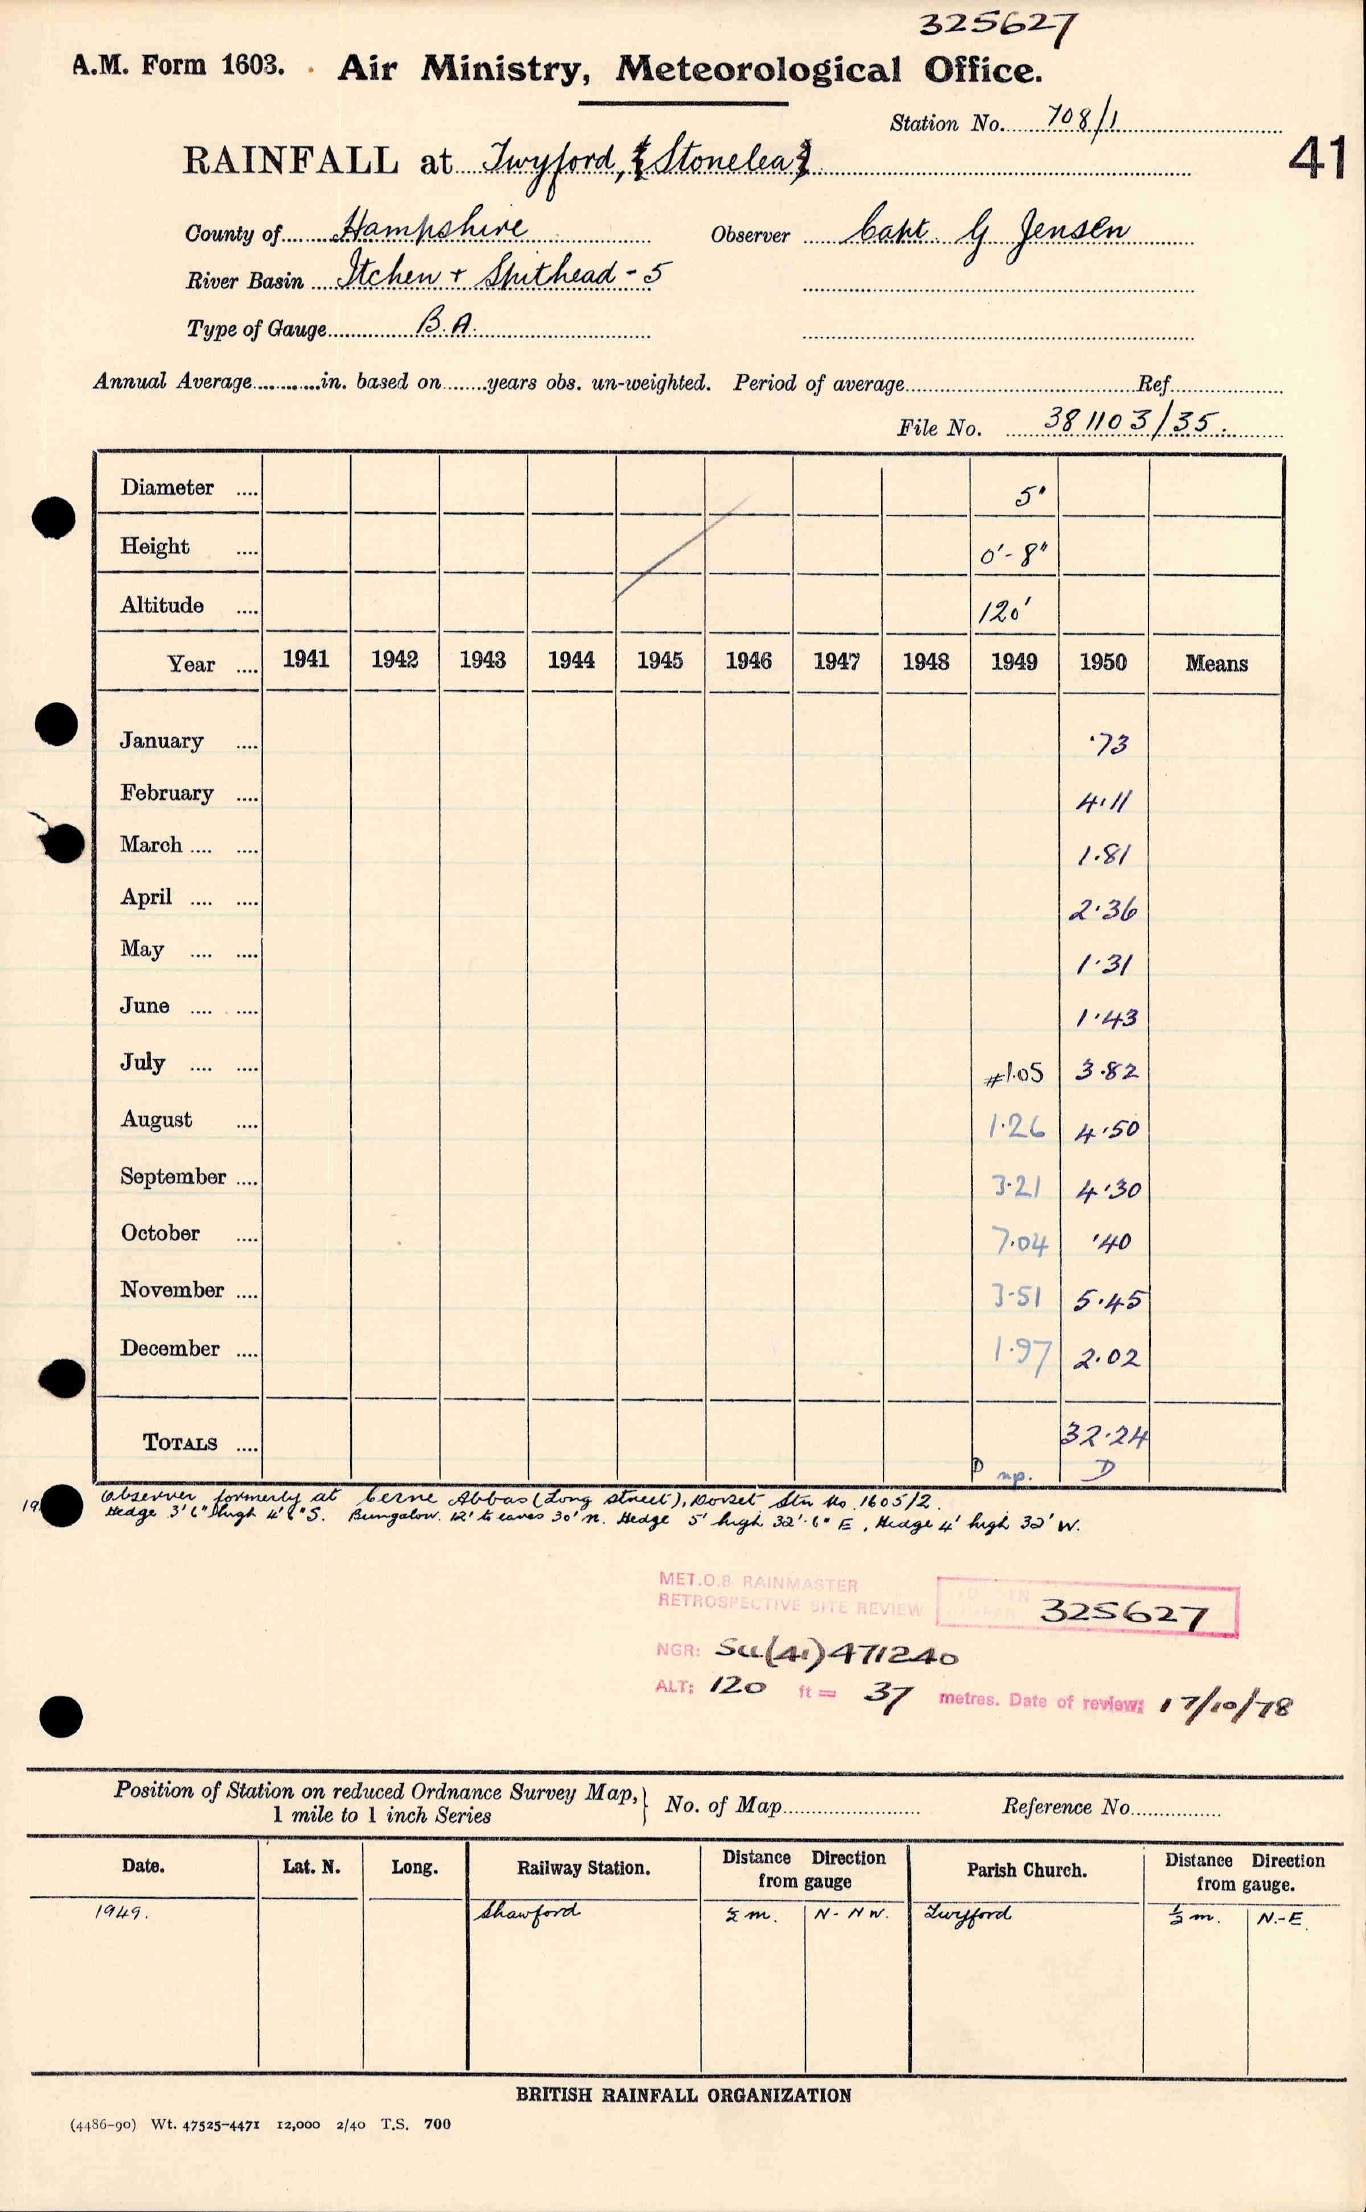 325627
A.M. Form 1603. Air Ministry, Meteorological Office.
Station No. 708/1
41
RAINFALL at Twyford, (Stonelea)
County of Hampshire Observer Capt. G Jensen
River Basin Itchen + Spithead - 5
Type of Gauge B.A.
Annual Average in. based on years obs. un-weighted. Period of average Ref.
File No. 381103/35.
Diameter 5"
Height 0'-8"
Altitude 120'
Year 1941 1942 1943 1944 1945 1946 1947 1948 1949 1950 Means
January ·73
February 4·11
March 1·81
April 2·36
May 1·31
June 1·43
July #1.05 3·82
August 1·26 4·50
September 3·21 4·30
October 7·04 ·40
November 3·51 5·45
December 1·97 2·02
TOTALS 32·24
D np. D
Observer formerly at Cerne Abbas (Long Street), Dorset Stn No. 1605/2.
19 Hedge 3'6" high 4'6" S. Bungalow. 12' to eaves 30' N. Hedge 5' high 32'-6" E, Hedge 4' high 32' W.
MET.O.8 RAINMASTER
RETROSPECTIVE SITE REVIEW 325627
NGR: SU(41)471240
ALT: 120 ft = 37 metres. Date of review: 17/10/78
Position of Station on reduced Ordnance Survey Map, 1 mile to 1 inch Series } No. of Map Reference No.
Date. Lat. N. Long. Railway Station. Distance Direction from gauge Parish Church. Distance Direction from gauge.
1949. Shawford ½ m. N-NW. Twyford ½ m. N.-E.
BRITISH RAINFALL ORGANIZATION
(4486-90) Wt. 47525-4471 12,000 2/40 T.S. 700